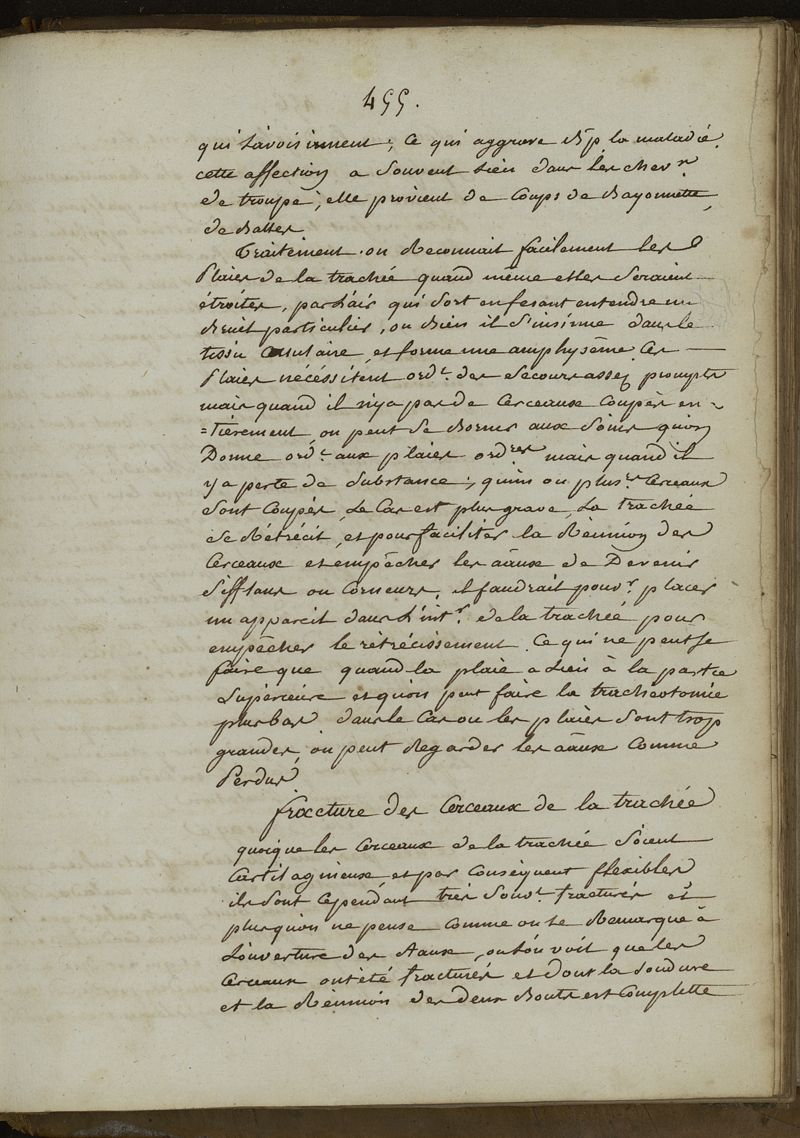 455.
qui L'avoisinnent, Ce qui aggrave la maladie.
cette affection a Souvent Lieu dans Les chev.x
de troupe, elle provient de Coups de Bayonnette,
de Balles
Traitement. on Reconnait facilement Les
Plaies de la trachée quand même elles Seraient
étroites, par L'air qui Sort en fesant entendre un
Bruit particulier, ou Bien il S'insinue dans le
tissu et forme une amphysême Ces
Plaies nécéssitent ord.t des Secours assez prompts
mais quand il n'y a pas de Cerceaux Coupés en-
=tièrement, on peut Se Borner aux Soins qu'on
Donne ord.t aux plaies ord.res mais quand il
y a perte de Substance, qu'un ou plus.rs Cerceaux
Sont Coupés, Le Cas est plus grave, La trachée
Se Rétrécit, et pour faciliter la Réunion des
Cerceaux et empêcher les aāux de Devenir
Sifflans ou Corneurs, il faudrait pouv.r placer
un appareil dans L'int.r de la trachée pour
empêcher le rétrécissement. Ce qui ne peut Se
faire que quand la plaie a Lieu à la partie
Supérieure et qu'on peut faire la tracheotomie
plus bas dans le Cas ou les plaies Sont trop
grandes, on peut Regarder les aāux Comme
Perdus,
fracture des Cerceaux de la trachée
quoique les Cerceaux de la trachée Soient
Cartilagineux et par Conséquent flexibles
ils Sont Cependant très Souv.t fracturés et
plus qu'on ne pense Comme on le Remarque à
L'ouverture des Aāux, ou L'on voit que les
Cerceaux ont été fracturés et Dont la Soudure
et la Réunion des deux Bouts est Complette